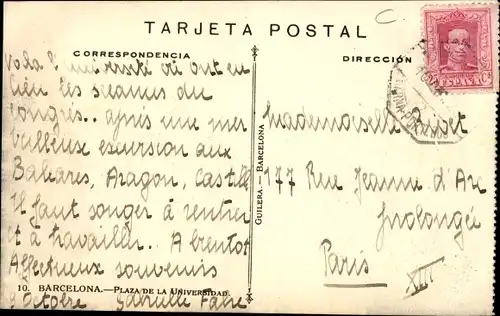 TARJETA POSTAL
CORRESPONDENCIA
DIRECCIÓN
Voilà l'université où ont eu
lieu les séances du
congrès.. après une mer
veilleuse excursion aux
Baléares, Aragon, Castille
Il faut songer à rentrer
et à travailler. A bientôt
Affectueux souvenirs
10. BARCELONA.—PLAZA DE LA UNIVERSIDAD.
Octobre Gabrielle Fabre
GUILERA.—BARCELONA
Mademoiselle
177 Rue Jeanne d'Arc
prolongée
Paris XIII
ESPAÑA